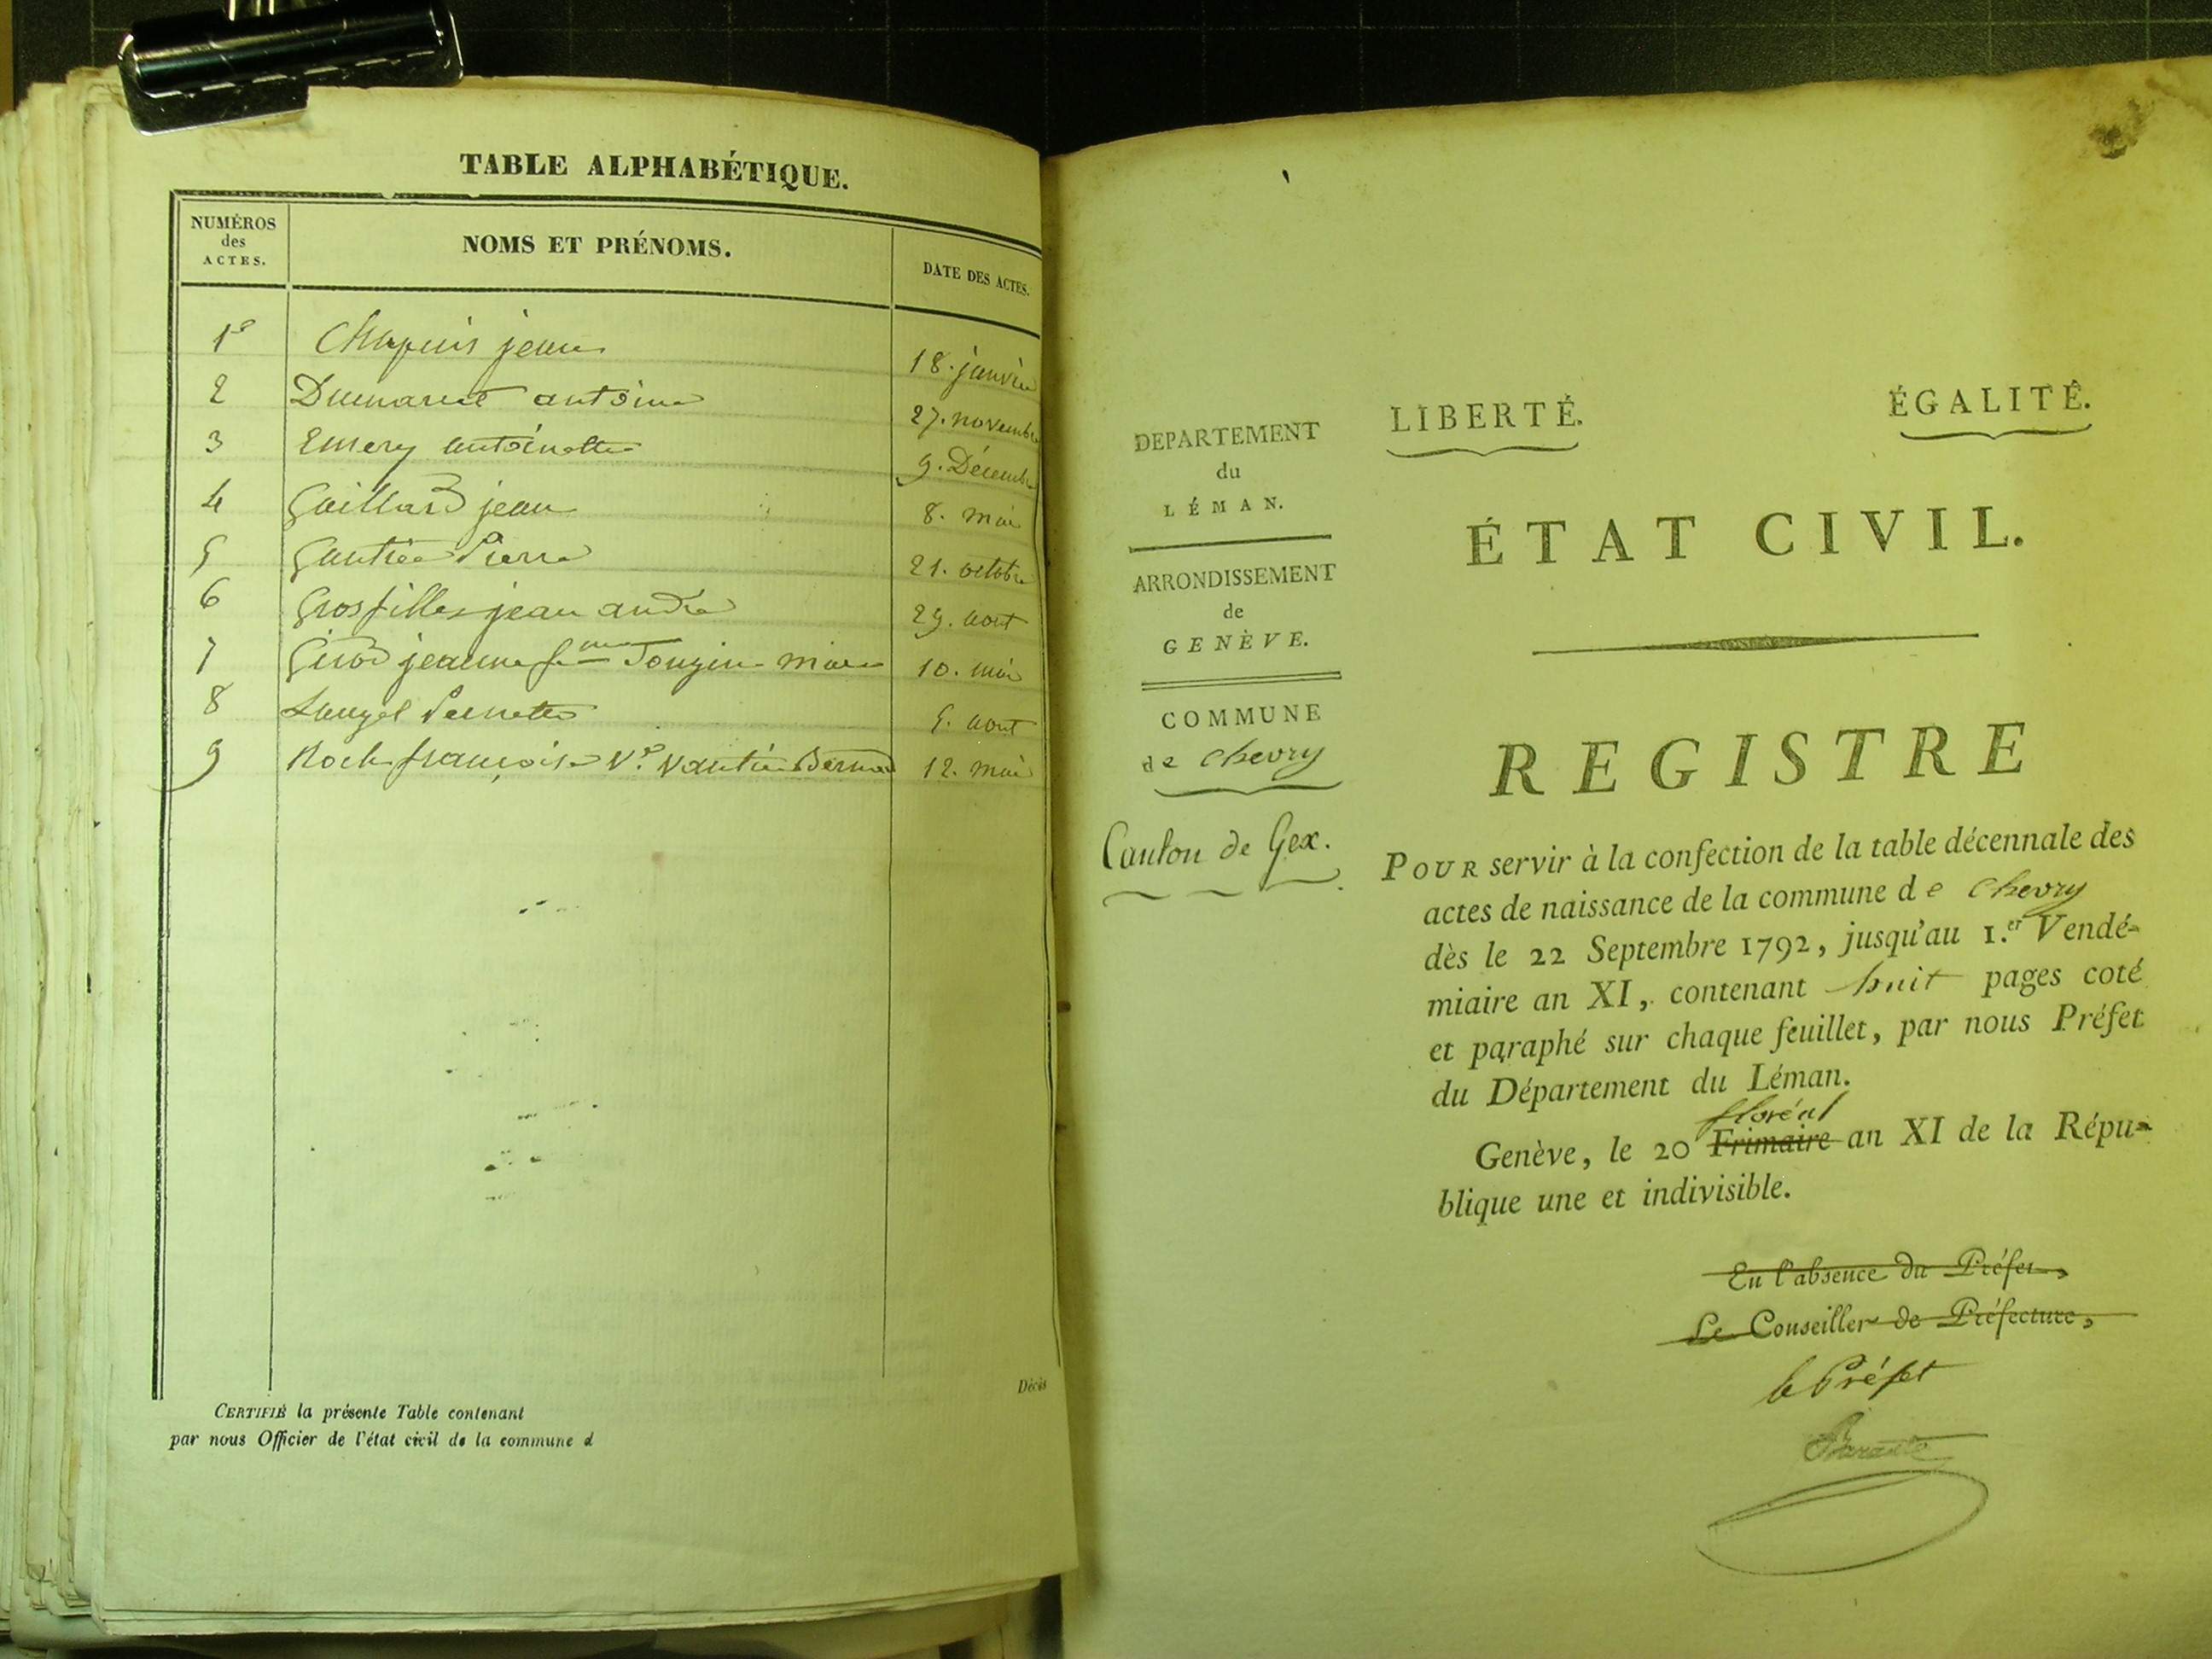 TABLE ALPHABÉTIQUE.
NUMÉROS
des
ACTES.
NOMS ET PRÉNOMS.
DATE DES ACTES.
1e Chapuis jean 18. janvier
2 Dumarest antoine 27. novembre
3 Emery antoinette 9. Décembre
4 Gaillard jean 8. mai
5 Pierre 21. octobre
6 Grosfilley jean andré 29. aout
7 Girod jeanne fme 10. mai
8 Pernette 5. aout
9 Roch françoise Ve. 12. mai
Décès
CERTIFIÉ la présente Table contenant
par nous Officier de l'état civil de la commune d
LIBERTÉ.
ÉGALITÉ.
DEPARTEMENT
du
LÉMAN.
ARRONDISSEMENT
de
GENÈVE.
COMMUNE
de chevry
Canton de Gex.
ÉTAT CIVIL.
REGISTRE
POUR servir à la confection de la table décennale des
actes de naissance de la commune de chevry
dès le 22 Septembre 1792, jusqu'au 1.er Vendé-
miaire an XI, contenant huit pages coté
et paraphé sur chaque feuillet, par nous Préfet
du Département du Léman.
floréal
Genève, le 20 Frimaire an XI de la Répu-
blique une et indivisible.
En l'absence du Préfet,
Le Conseiller de Préfecture,
le Préfet
Barante